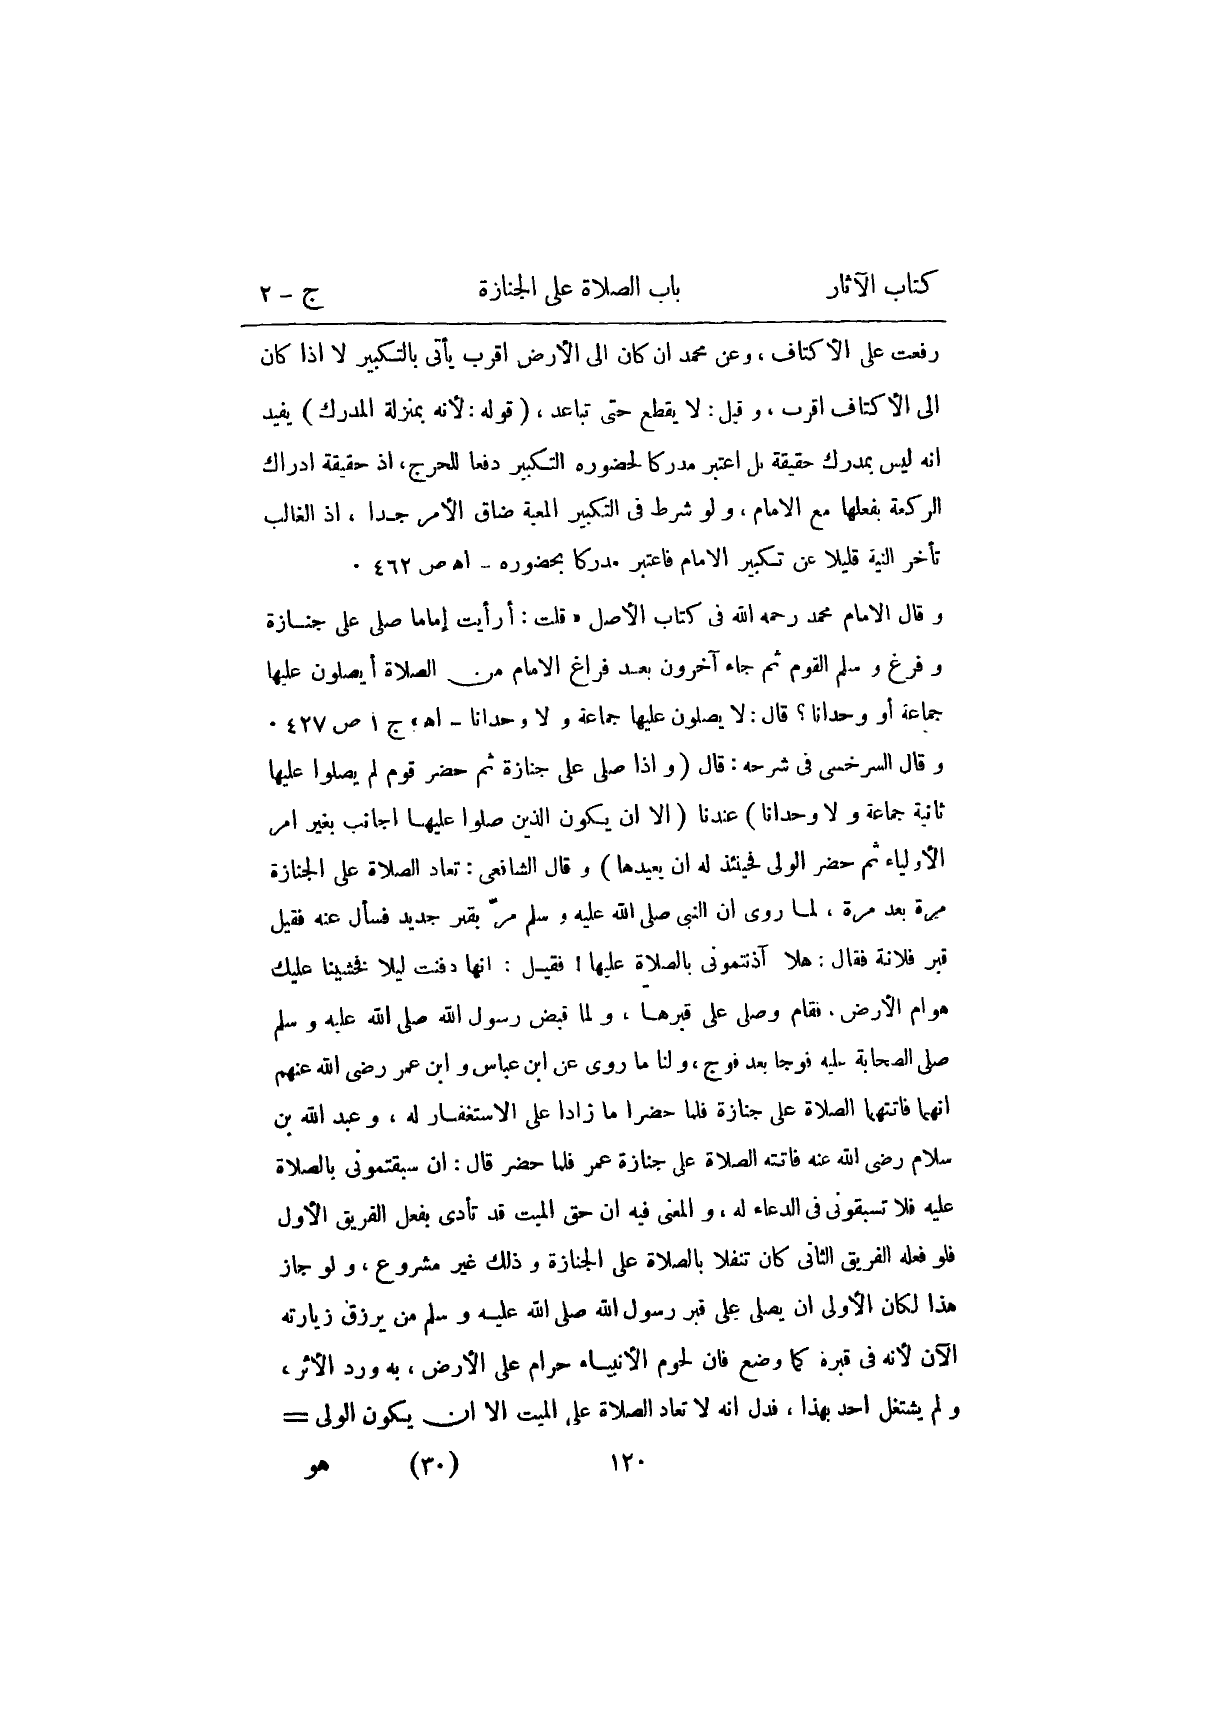 كتاب الآثار باب الصلاة على الجنازة ج - ٢
رفعت على الأكتاف ، وعن محمد ان كان الى الأرض اقرب يأتى بالتكبير لا اذا كان
الى الأكتاف اقرب ، و قيل : لا يقطع حتى تباعد ، ( قوله : لأنه بمنزلة المدرك ) يفيد
انه ليس بمدرك حقيقة بل اعتبر مدركا لحضوره التكبير دفعا للحرج ، اذ حقيقة ادراك
الركعة بفعلها مع الامام ، و لو شرط فى التكبير المعية ضاق الأمر جدا ، اذ الغالب
تأخر النية قليلا عن تكبير الامام فاعتبر مدركا بحضوره - اه ص ٤٦٢ .
و قال الامام محمد رحمه الله فى كتاب الأصل « قلت : أ رأيت إماما صلى على جنازة
و فرغ و سلم القوم ثم جاء آخرون بعد فراغ الامام من الصلاة أ يصلون عليها
جماعة أو وحدانا ؟ قال : لا يصلون عليها جماعة و لا وحدانا - اه ؛ ج ١ ص ٤٢٧ .
و قال السرخسى فى شرحه : قال ( و اذا صلى على جنازة ثم حضر قوم لم يصلوا عليها
ثانية جماعة و لا وحدانا ) عندنا ( الا ان يكون الذين صلوا عليها اجانب بغير امر
الأولياء ثم حضر الولى فحينئذ له ان يعيدها ) و قال الشافعى : تعاد الصلاة على الجنازة
مرة بعد مرة ، لما روى ان النبى صلى الله عليه و سلم مرّ بقبر جديد فسأل عنه فقيل
قبر فلانة فقال : هلا آذنتمونى بالصلاة عليها ! فقيل : انها دفنت ليلا فخشينا عليك
هوام الأرض . فقام وصلى على قبرها ، و لما قبض رسول الله صلى الله عليه و سلم
صلى الصحابة عليه فوجا بعد فوج ، و لنا ما روى عن ابن عباس و ابن عمر رضى الله عنهم
انهما فاتتهما الصلاة على جنازة فلما حضرا ما زادا على الاستغفار له ، و عبد الله بن
سلام رضى الله عنه فاتته الصلاة على جنازة عمر فلما حضر قال : ان سبقتمونى بالصلاة
عليه فلا تسبقونى فى الدعاء له ، و المعنى فيه ان حق الميت قد تأدى بفعل الفريق الأول
فلو فعله الفريق الثانى كان تنفلا بالصلاة على الجنازة و ذلك غير مشروع ، و لو جاز
هذا لكان الأولى ان يصلى على قبر رسول الله صلى الله عليه و سلم من يرزق زيارته
الآن لأنه فى قبره كما وضع فان لحوم الأنبياء حرام على الأرض ، به ورد الأثر ،
و لم يشتغل احد بهذا ، فدل انه لا تعاد الصلاة على الميت الا ان يكون الولى =
١٢٠ (٣٠) هو